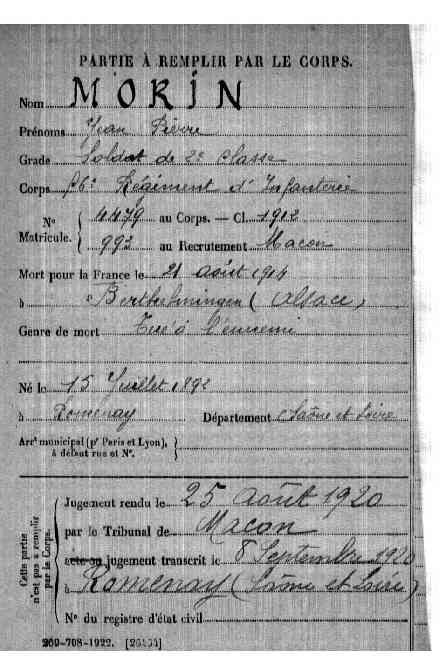 PARTIE À REMPLIR PAR LE CORPS.
Nom MORIN
Prénoms Jean Pierre
Grade Soldat de 2e Classe
Corps 56e Régiment d'Infanterie
No Matricule. { 4479 au Corps. — Cl. 1912
992 au Recrutement Macon
Mort pour la France le 21 août 1914
à Berthelmingen (Alsace)
Genre de mort Tué à l'ennemi
Né le 15 Juillet 1892
à Romenay Département Saône et Loire
Arrt municipal (pr Paris et Lyon), }
à défaut rue et No.
Cette partie n'est pas à remplir par le Corps.
Jugement rendu le 25 Août 1920
par le Tribunal de Macon
acte ou jugement transcrit le 8 Septembre 1920
à Romenay (Saône et Loire)
No du registre d'état civil
269-708-1922. [26434]